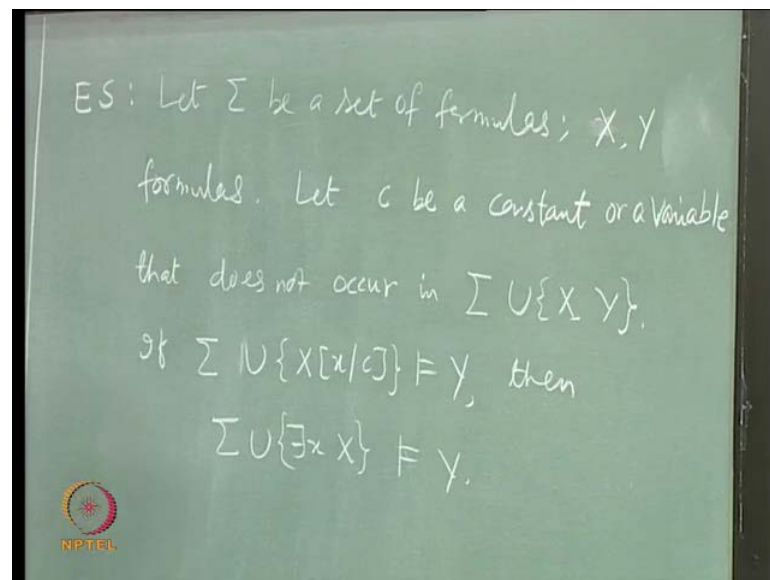 ES: Let Σ be a set of formulas; X, Y
formulas. Let c be a constant or a variable
that does not occur in Σ ∪ {X Y}.
If Σ ∪ {X[x/c]} ⊨ Y, then
Σ ∪ {∃x X} ⊨ Y.
NPTEL